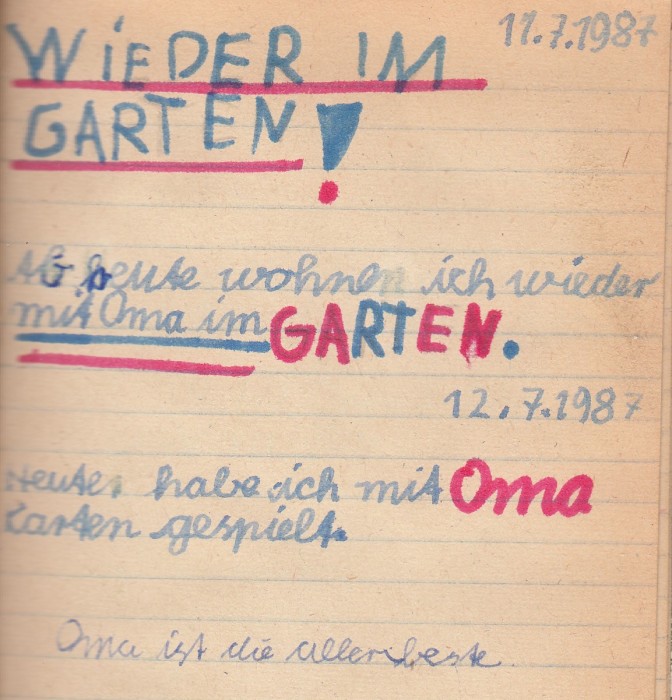 11.7.1987
WIEDER IM
GARTEN!
Ab heute wohnen ich wieder
mit Oma im GARTEN.
12.7.1987
Heute habe ich mit Oma
Karten gespielt.
Oma ist die allerbeste